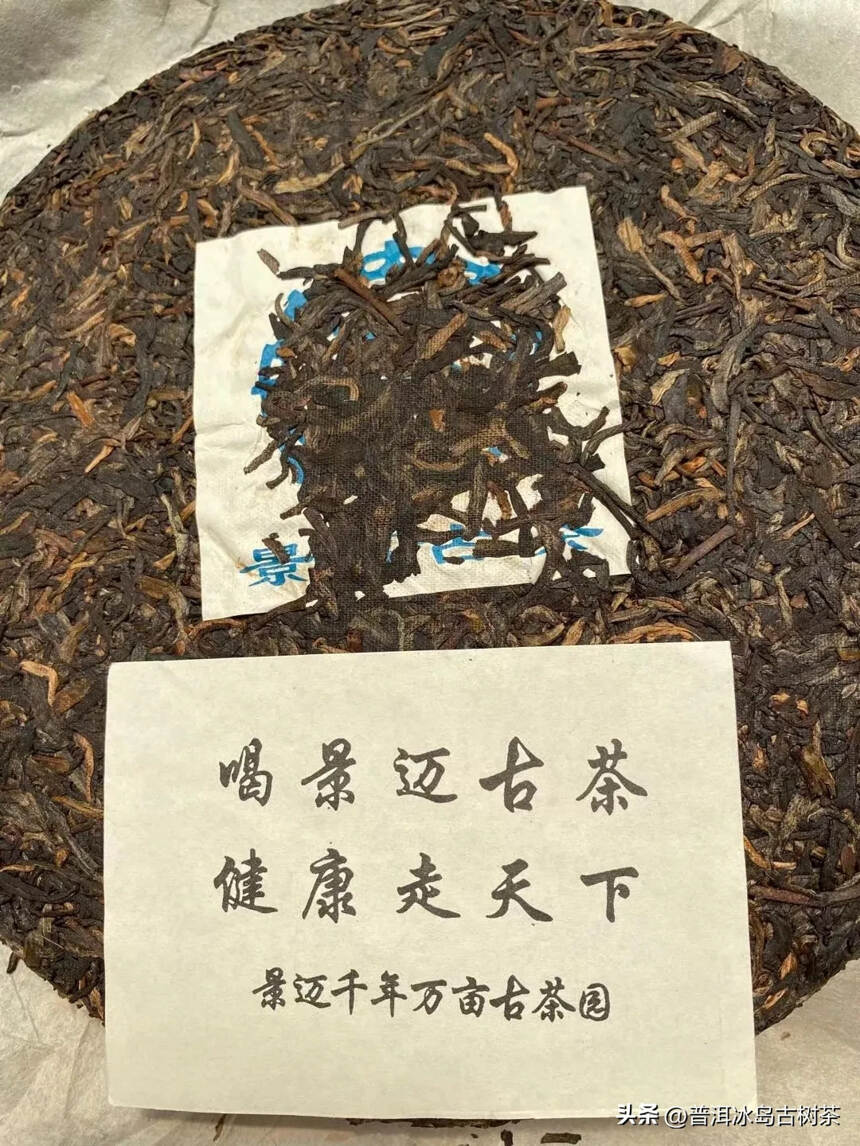 景
古
喝景迈古茶
健康走天下
景迈千年万亩古茶园
头条 @普洱冰岛古树茶